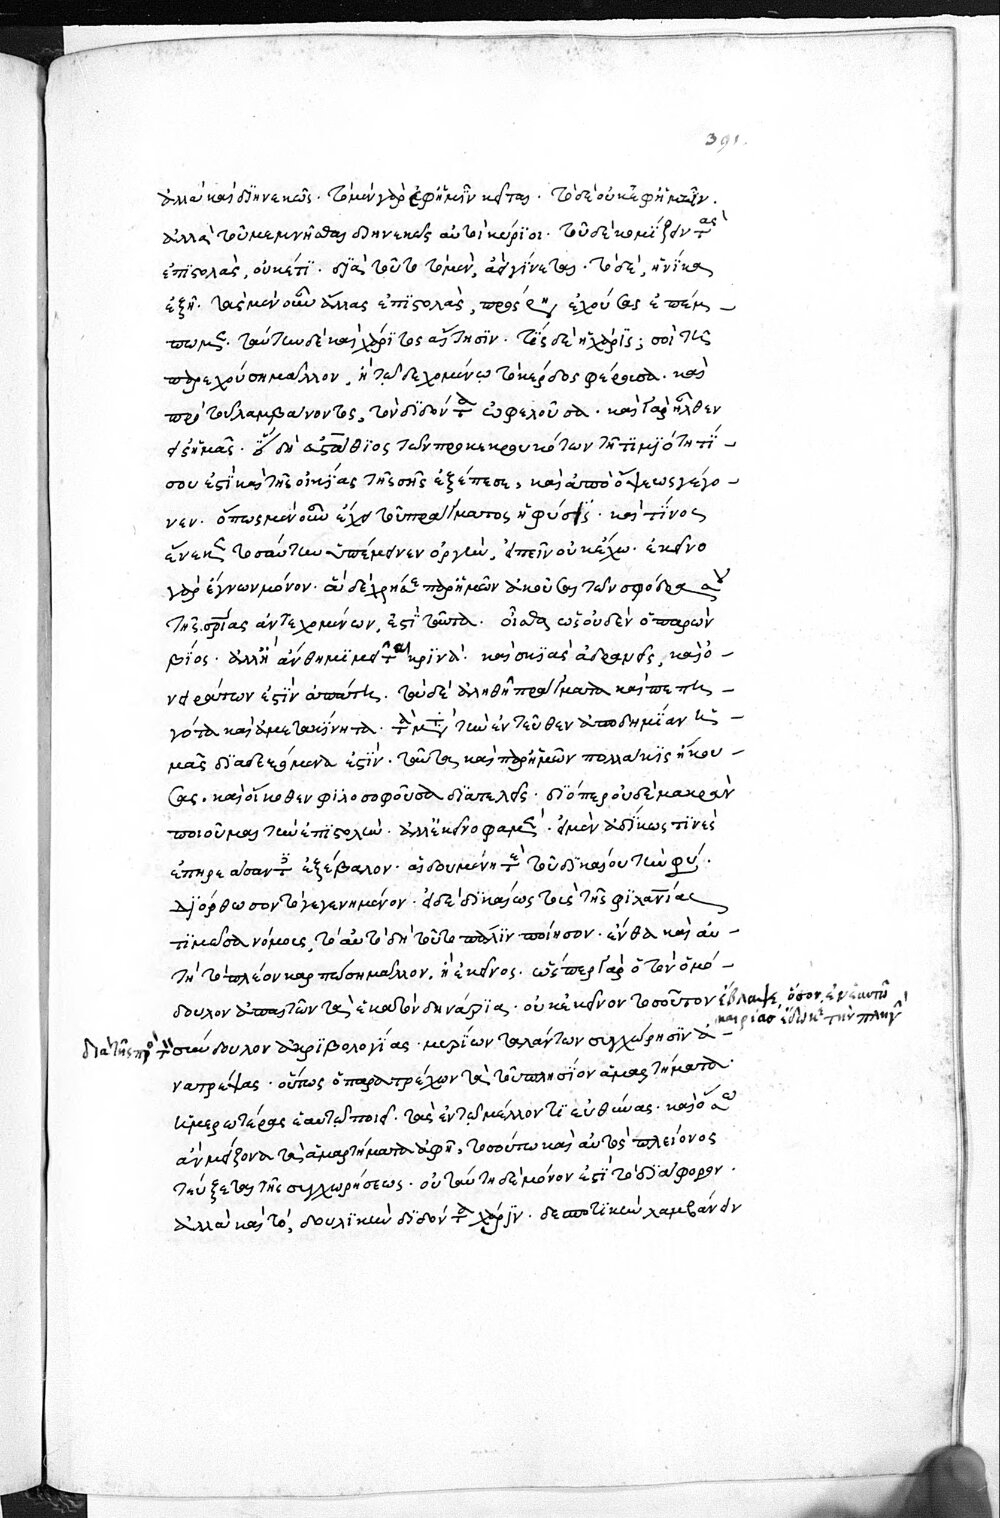 ἀλλὰ καὶ διηνεκῶς. τὸ μὲν γὰρ ἐφ' ἡμῖν κεῖται. τὸ δὲ οὐκ ἐφ' ἡμῖν.
ἀλλὰ τοῦ μεμνῆσθαι διηνεκῶς αὐτοὶ κύριοι. τοῦ δὲ κομίζειν τὰς
ἐπιστολὰς, οὐκέτι. διὰ τοῦτο τὸ μὲν, ἀεὶ γίνεται. τὸ δὲ, ἡνίκα
ἐξῇ. τὰς μὲν οὖν ἄλλας ἐπιστολὰς, ἐχούσας ἐπέμ-
πομεν. ταύτην δὲ καὶ χάριτος αἴτησιν. τίς δὲ ἡ χάρις; σοὶ τῇ
παρεχούσῃ μᾶλλον, ἢ τῷ δεχομένῳ τὸ κέρδος φέρουσα. καὶ
πρὸ τοῦ λαμβάνοντος, τὸν διδόντα ὠφελοῦσα. καὶ γὰρ ἦλθεν
εἰς ἡμᾶς. ὡς δὴ εὐστάθιος τῶν προσκεκρουκότων τῇ τιμιότητί
σου ἐστὶ καὶ τῆς οἰκίας τῆς σῆς ἐξέπεσε, καὶ ἀπὸ ὄψεως γέγο-
νεν. ὅπως μὲν οὖν ἔχει τοῦ πράγματος ἡ φύσις. καὶ τίνος
ἕνεκεν τοσαύτην ὑπέμεινεν ὀργὴν, εἰπεῖν οὐκ ἔχω. ἐκεῖνο
γὰρ ἔγνων μόνον. ἃ δὲ χρή σε παρ' ἡμῶν ἀκοῦσαι τῶν σφόδρα σου
τῆς σωτηρίας ἀντεχομένων, ἐστὶ ταῦτα. οἶσθα ὡς οὐδὲν ὁ παρὼν
βίος. ἀλλ' ἢ ἄνθη μιμεῖται καὶ σκιὰς ἀδρανεῖς, καὶ ὀ-
νειράτων ἐστὶν ἀπάτη. τὰ δὲ ἀληθῆ πράγματα καὶ πεπη-
γότα καὶ ἀμετακίνητα. τὰ μετὰ τὴν ἐντεῦθεν ἀποδημίαν ἡ-
μᾶς διαδεξόμενα ἐστίν. ταῦτα καὶ παρ' ἡμῶν πολλάκις ἤκου-
σας. καὶ οἴκοθεν φιλοσοφοῦσα διατελεῖς. διόπερ οὐδὲ μακρὰν
ποιοῦμαι τὴν ἐπιστολήν. ἀλλ' ἐκεῖνο φαμὲν. εἰ μὲν ἀδίκως τινὲς
ἐπηρεάσαντες ἐξέβαλον. αἰδουμένη τὲ τοῦ δικαίου τὴν φύσιν.
διόρθωσον τὸ γεγενημένον. εἰ δὲ δικαίως τοὺς τῆς φιλανθρωπίας
τιμῶσα νόμους, τὸ αὐτὸ δὴ τοῦτο πάλιν ποίησον. ἔνθα καὶ αὐ-
τὴ τὸ πλέον καρπώσῃ μᾶλλον, ἢ ἐκεῖνος. ὥσπερ γὰρ ὁ τὸν ὁμό-
δουλον ἀπαιτῶν τὰ ἑκατὸν δηνάρια. οὐκ ἐκεῖνον τοσοῦτον ἔβλαψε, ὅσον ἐν ἑαυτῷ
καιρίας ἔδωκε τὴν πληγὴν
διὰ τῆς πρὸς τὸν σύνδουλον ἀκριβολογίας. μυρίων ταλάντων συγχώρησιν ἀ-
νατρέψας. οὕτως ὁ παρατρέχων τὰ τοῦ πλησίον ἁμαρτήματα
ἡμερωτέρας ἑαυτῷ ποιεῖ. τὰς ἐν τῷ μέλλοντι εὐθύνας. καὶ ὅσῳ
ἂν μείζονα τὰ ἁμαρτήματα ἀφῇ, τοσούτω καὶ αὐτὸς πλείονος
τεύξεται τῆς συγχωρήσεως. οὐ ταύτῃ δὲ μόνον ἐστὶ τὸ διάφορον.
ἀλλὰ καὶ τὸ, δουλικὴν διδόντα χάριν. δεσποτικὴν λαμβάνειν